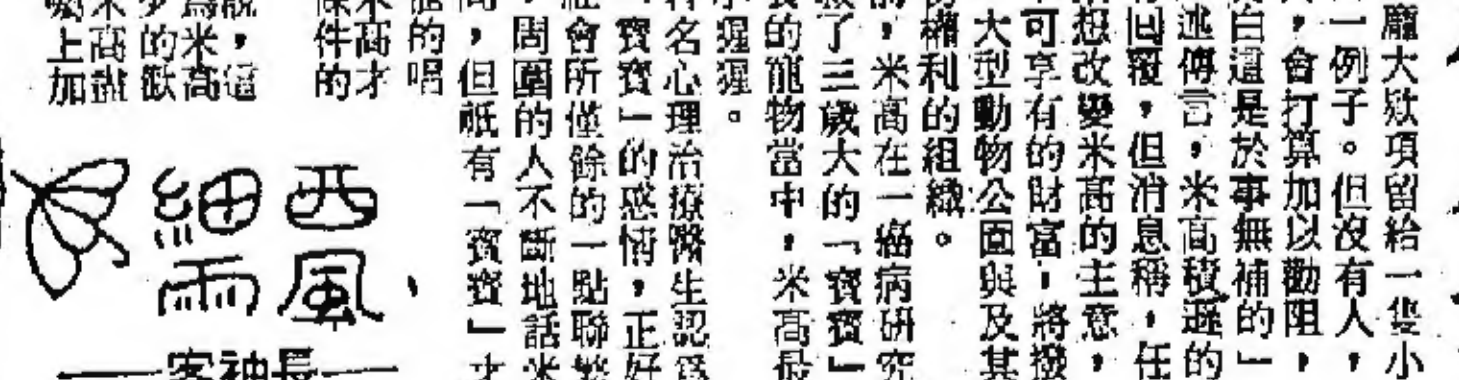 龐大欵項留給一隻小
一例子。但沒有人，
，會打算加以勸阻，
白這是於事無補的」
述傳言，米高積遜的
回覆，但消息稱，任
想改變米高的主意，
可享有的財富，將撥
大型動物公園與及其
權利的組織。
，米高在一癌病研究
了三歲大的「寶寶」
的寵物當中，米高最
猩猩。
名心理治療醫生認爲
「寶寶」的感情，正好
社會所僅餘的一點聯繫
，周圍的人不斷地話米
高，但祇有「寶寶」才
的唱
米高才
件的
說，這
爲米高
的歡
米高盡
上加
西風細雨
長袖客